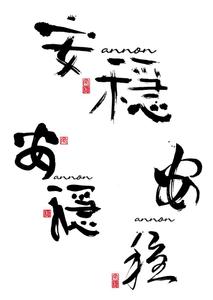 安穏
annon
安穏
annon
安穏
annon